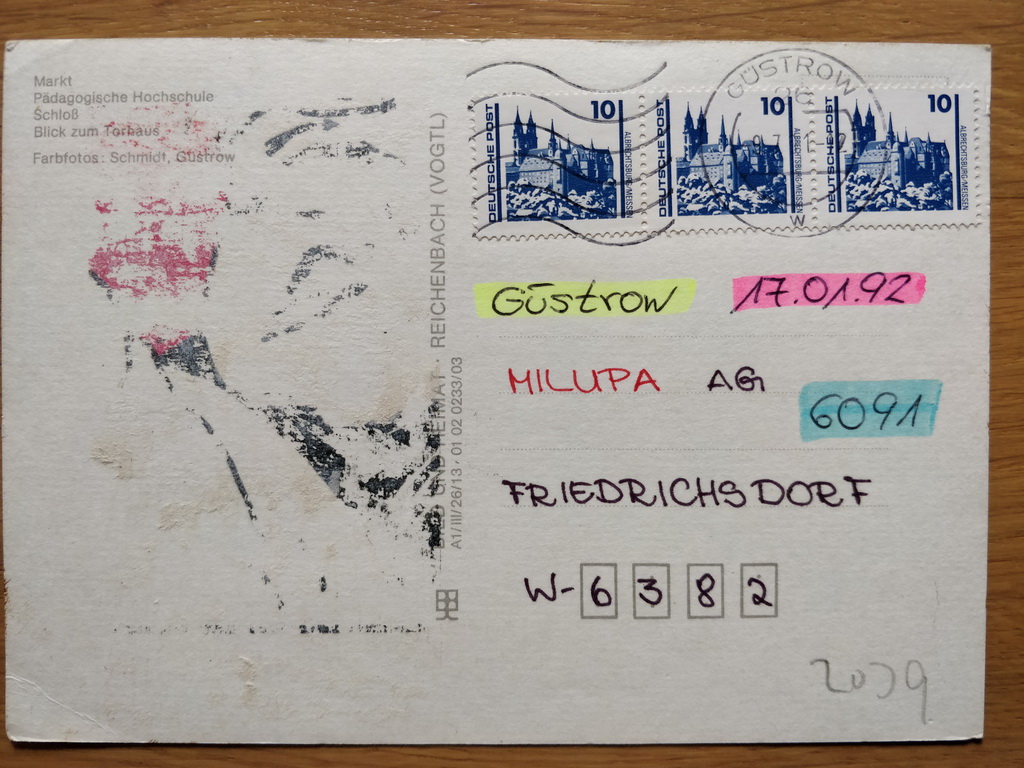 Markt
Pädagogische Hochschule
Schloß
Blick zum Torhaus
Farbfotos: Schmidt, Güstrow
REICHENBACH (VOGTL)
UND HEIMAT
A1/III/26/13 · 01 02 0233/03
10
DEUTSCHE POST
ALBRECHTSBURG/MEISSEN
10
DEUTSCHE POST
ALBRECHTSBURG/MEISSEN
10
DEUTSCHE POST
ALBRECHTSBURG/MEISSEN
GÜSTROW
W
Güstrow 17.01.92
MILUPA AG
6091
FRIEDRICHSDORF
W-6382